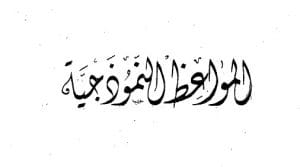 المواعظ النموذجية